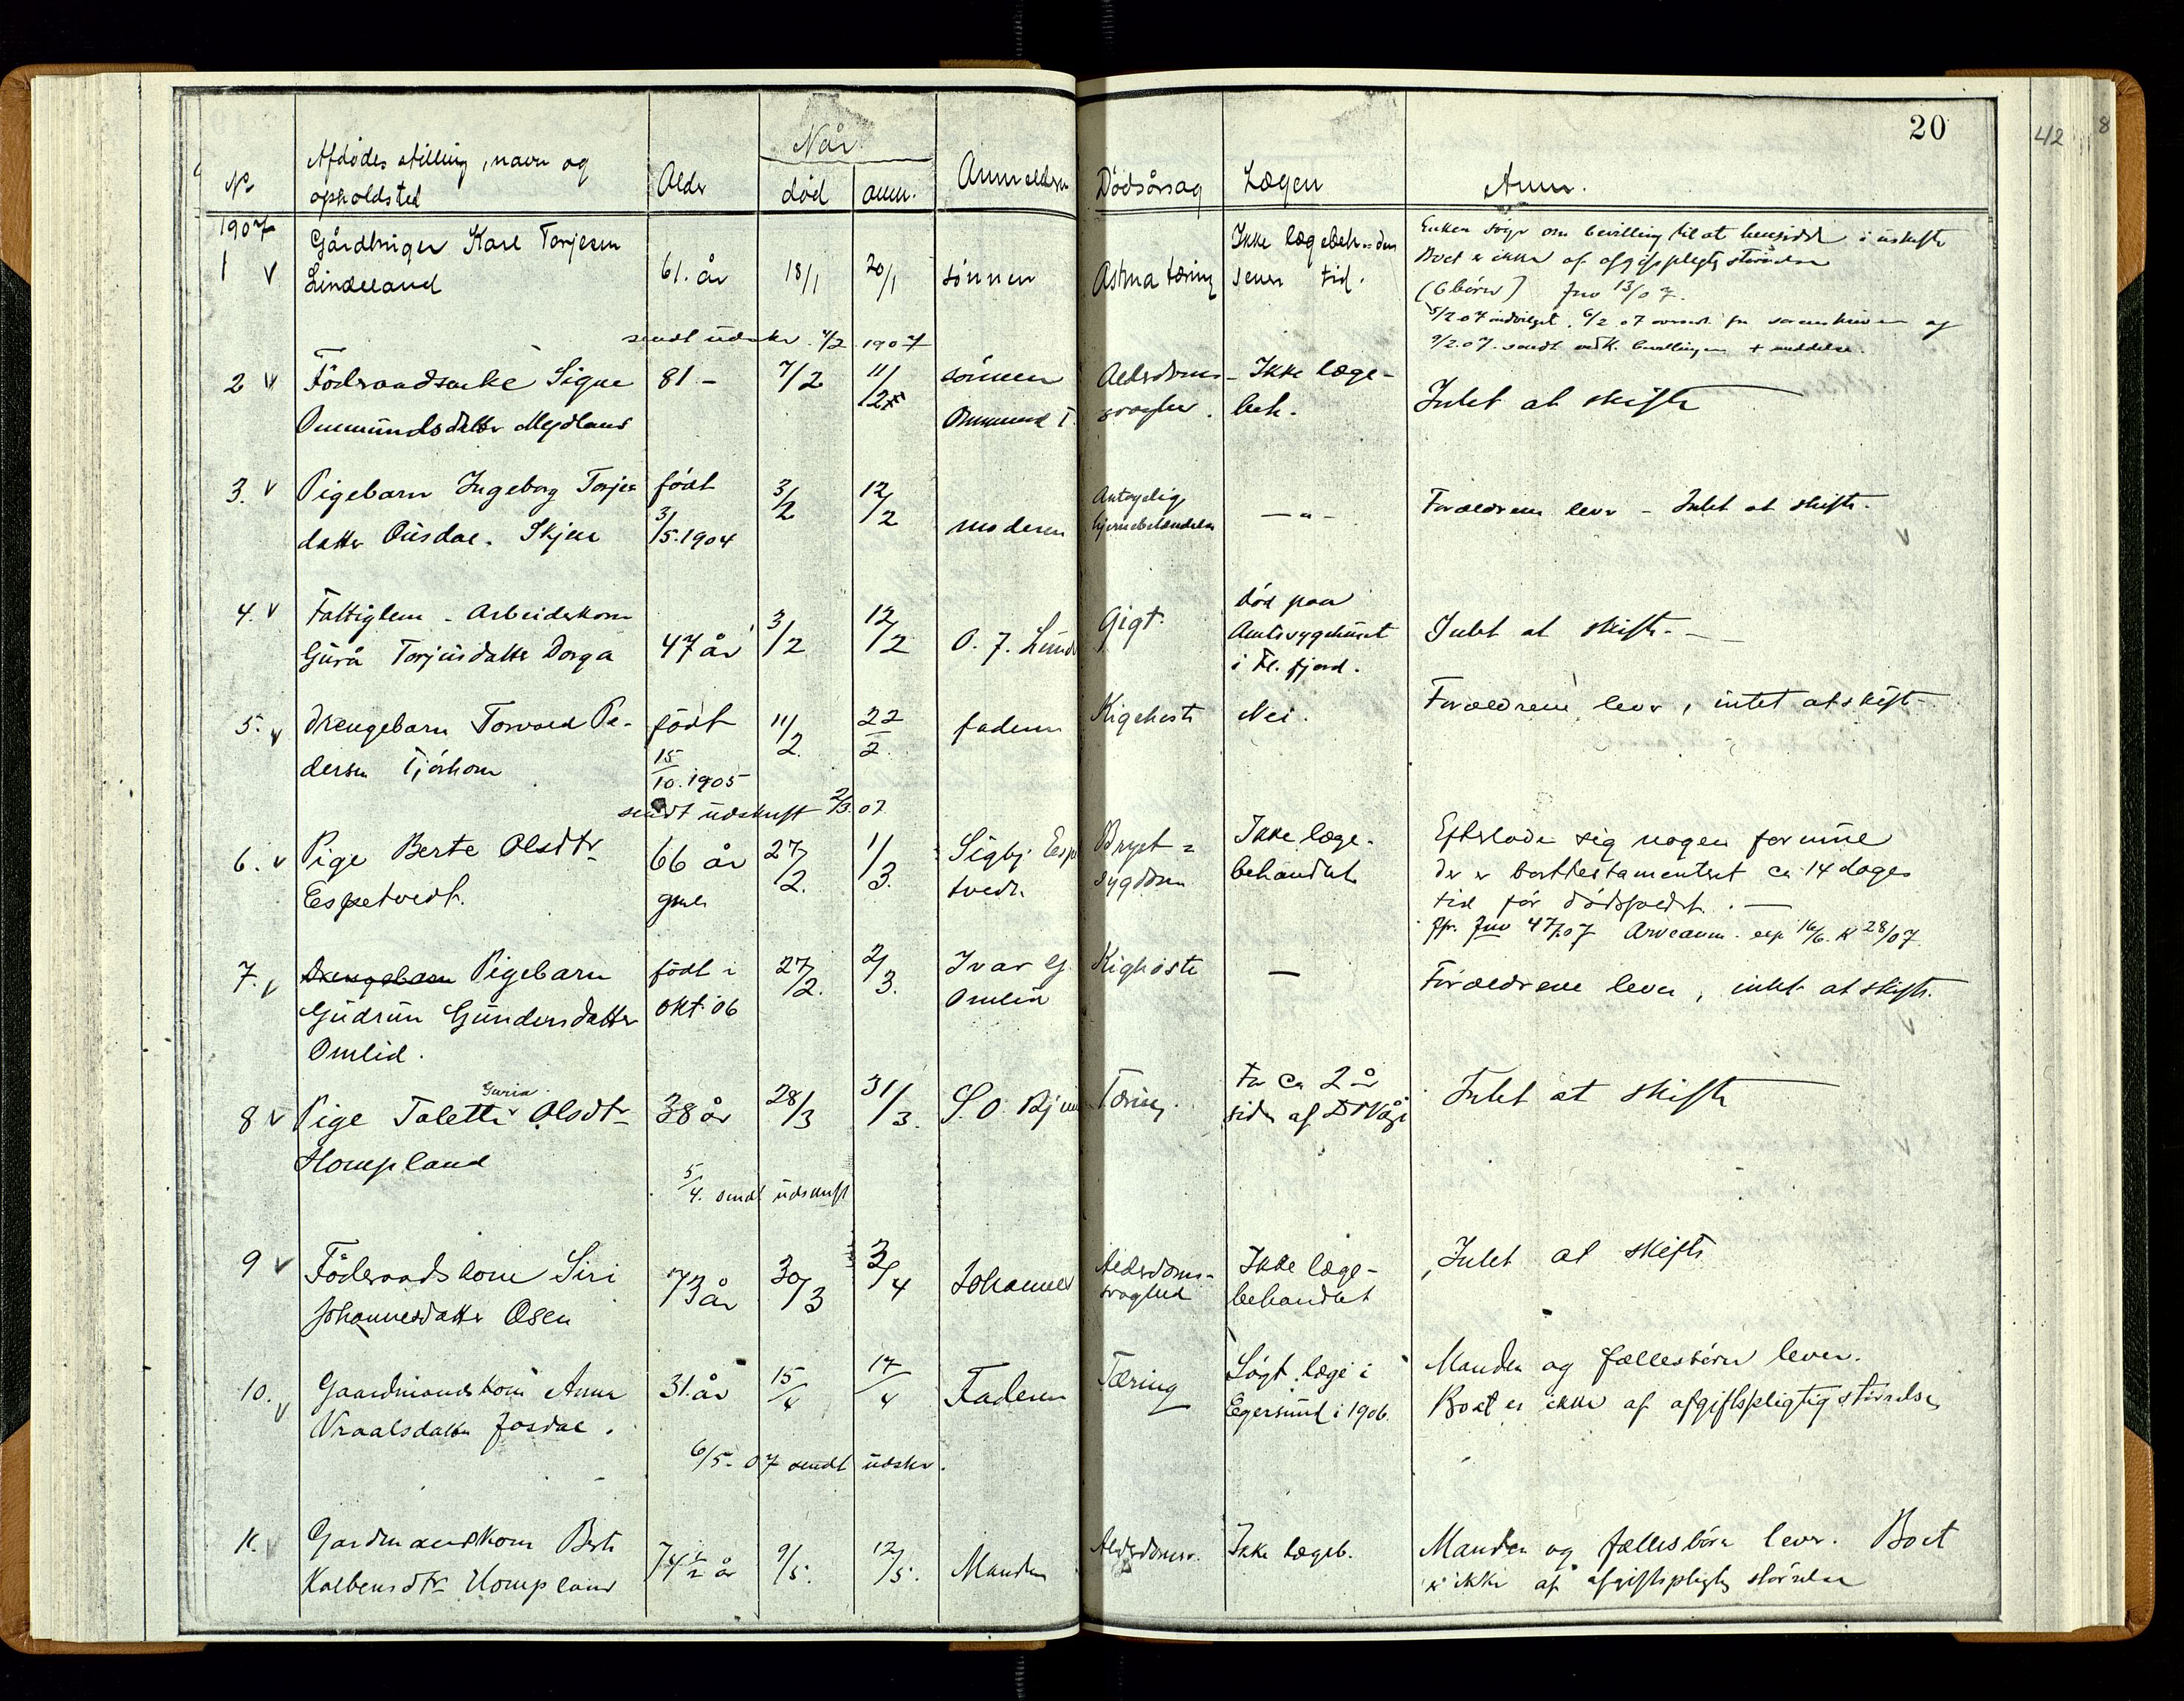 20
42
8
No
Afdødes stilling, navn og
opholdsted
Alder
Når
død
anm.
Anmelderen
Dødsårsag
Lægen
Anm.
1907
1 v
Gårdbruger Karl Torjesen
Lindeland
61. år
18/1
20/1
sønnen
Astma tæring
Ikke lægebeh. den
senere tid.
Enken søger om bevilling til at hensidde i uskifte
Boet er ikke af afgiftspligtig størrelse
(6 børn) Jnr 13/07.
5/2 07 indvilget. 6/2 07 fra sorenskriveren og
9/2.07. sendt bevillingen + meddelse.
sendt udskr. 4/2 1907
2 v
Föderaadsenke Signe
Ommundsdatter Mydland
81 –
7/2
11/2
sönnen
Ommund T.
Alderdoms-
svaghed.
Ikke læge-
beh.
Intet at skifte
3. v
Pigebarn Ingeborg Torjes
datter Ousdal. Skjen
født
3/5.1904
3/2
12/2
moderen
Antagelig
hjernebetændelse
– „ –
Forældrene lever – Intet at skifte.
4. v
Fattiglem – Arbeiderkone
Gurå Torjusdatter Dorga
47 år
3/2
12/2
O. J. Lunde
Gigt.
död paa
Amtssygehuset
i Fl. fjord.
Intet at skifte. –
5. v
Drengebarn Torvald Pe-
dersen Tjörhom
født
15/10.1905
11/2
22/2
faderen
Kighoste
Nei.
Forældrene lever, intet at skifte
sendt udskrift 2/3.07
6. v
Pige Berte Olsdtr
Espetvedt.
66 år
gml.
27/2.
1/3.
Sigbj. Espe
tvedt.
Bryst =
sygdom
Ikke læge-
behandlet
Efterlader sig nogen formue
der er borttestamentert ca 14 dages
tid før dødsfaldet. –
Jfr. Jnr 47/07 Arveanm. exp 16/6. K 28/07
7. v
Drengebarn Pigebarn
Gudrun Gundersdatter
Omlid.
født i
okt. 06
27/2.
2/3.
Ivar G.
Omlid
Kighoste
–
Forældrene lever, intet at skifte.
8 v
Guria
Pige Taletta Olsdtr
Hompland
38 år
28/3
31/3.
S. O. Bjun
Tæring
For ca 2 år
siden af Dr Våge
Intet at skifte
5/4. sendt udskrift
9 v
Föderaadskone Siri
Johannesdatter Osen
73 år
30/3
3/4
Johannes
Alderdoms-
svaghed
Ikke læge-
behandlet
Intet at skifte
10. v
Gaardmandskone Anna
Vraalsdatter Josdal.
31. år
15/4
17/4
Faderen
Tæring
Søgt læge i
Egersund i 1906.
Manden og fællesbörn lever.
Boet er ikke af afgiftspligtig störrelse
6/5 - 07 sendt udskr.
11. v
Gardmandskone Berte
Kolbensdtr Hompland
74½ år
9/5.
12/5.
Manden
Alderdomsv.
Ikke lægeb.
Manden og fællesbörn lever. Boet
er ikke af afgiftspligtig störrelse